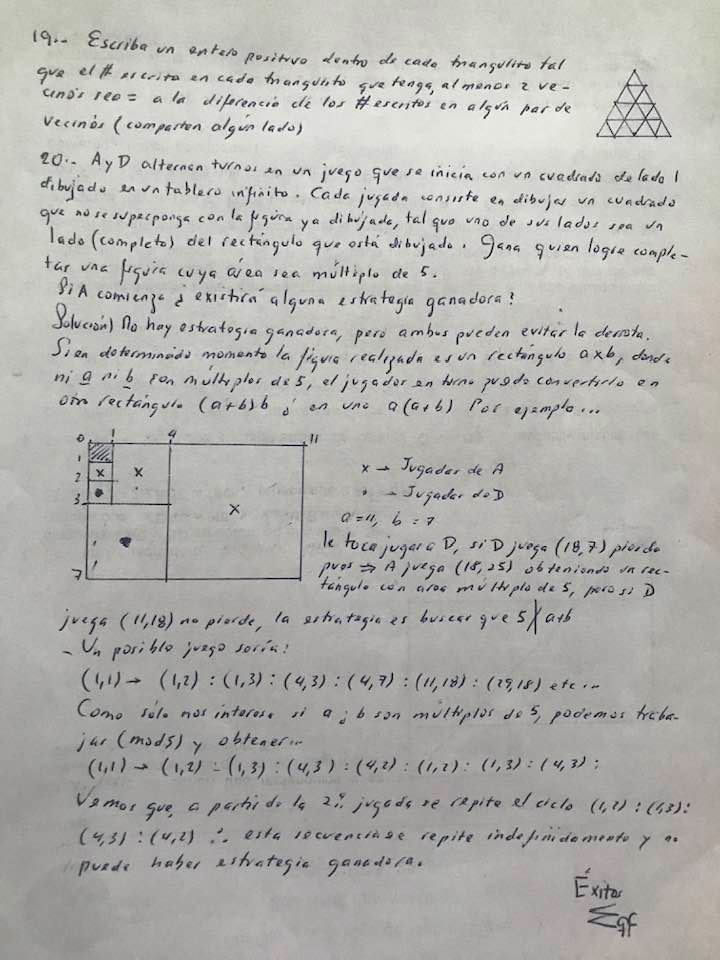 19.- Escriba un entero positivo dentro de cada triangulito tal
que el # escrito en cada triangulito que tenga, al menos 2 ve-
cinos sea = a la diferencia de los # escritos en algún par de
vecinos (comparten algún lado)
20.- A y D alternan turnos en un juego que se inicia con un cuadrado de lado 1
dibujado en un tablero infinito. Cada jugada consiste en dibujar un cuadrado
que no se superponga con la figura ya dibujada, tal que uno de sus lados sea un
lado (completo) del rectángulo que está dibujado. Gana quien logre comple-
tar una figura cuya área sea múltiplo de 5.
Si A comienza ¿existirá alguna estrategia ganadora?
Solución) No hay estrategia ganadora, pero ambos pueden evitar la derrota.
Si en determinado momento la figura realizada es un rectángulo axb, donde
ni a ni b son múltiplos de 5, el jugador en turno puede convertirlo en
otro rectángulo (a+b)b ó en uno a(a+b) Por ejemplo...
0 1 4 11
1
2 x x
3
x
7
x → Jugador de A
• → Jugador de D
a = 11, b = 7
le toca jugar a D, si D juega (18,7) pierde
pues ⇒ A juega (18,25) obteniendo un rec-
tángulo con area múltiplo de 5, pero si D
juega (11,18) no pierde, la estrategia es buscar que 5∤a+b
- Un posible juego sería:
(1,1) → (1,2) : (1,3) : (4,3) : (4,7) : (11,18) : (29,18) etc...
Como sólo nos interesa si a ó b son múltiplos de 5, podemos traba-
jar (mod 5) y obtener...
(1,1) → (1,2) - (1,3) : (4,3) : (4,2) : (1,2) : (1,3) : (4,3) :
Vemos que, a partir de la 2ª jugada se repite el ciclo (1,2) : (1,3) :
(4,3) : (4,2) ∴ esta secuencia se repite indefinidamente y no
puede haber estrategia ganadora.
Éxitos